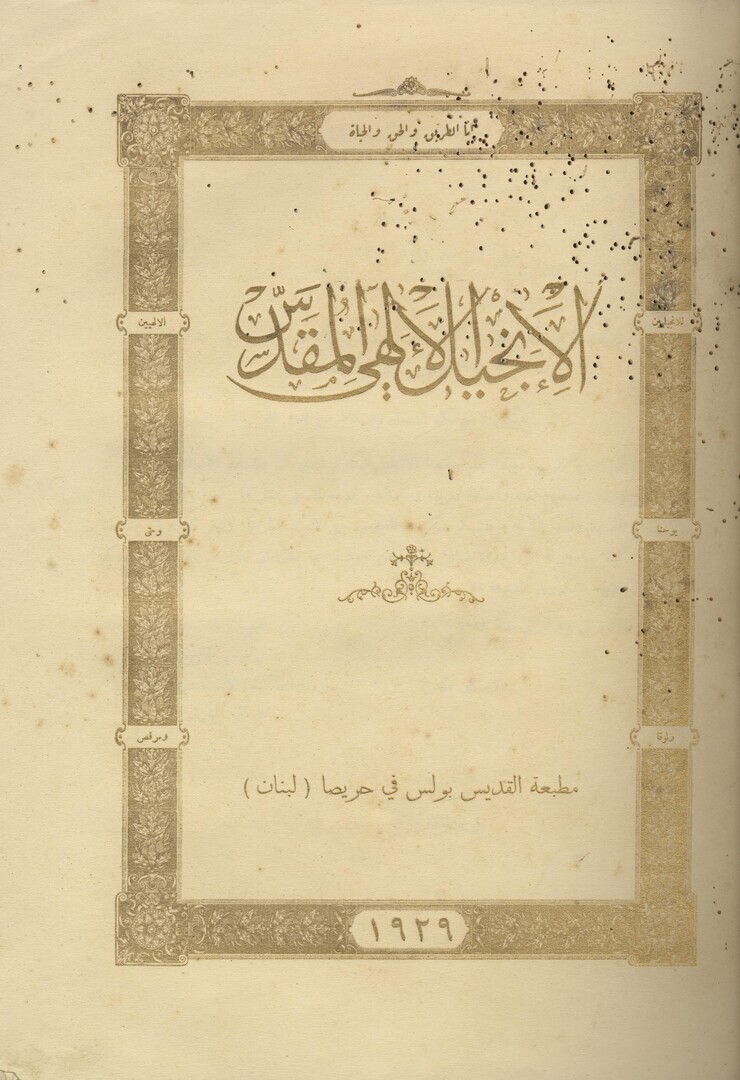 أنا الطريق والحق والحياة
الإنجيل الإلهي المقدّس
للانجيليين
الالهيين
يوحنا
ومتى
ولوقا
ومرقس
مطبعة القديس بولس في حريصا ( لبنان )
١٩٢٩